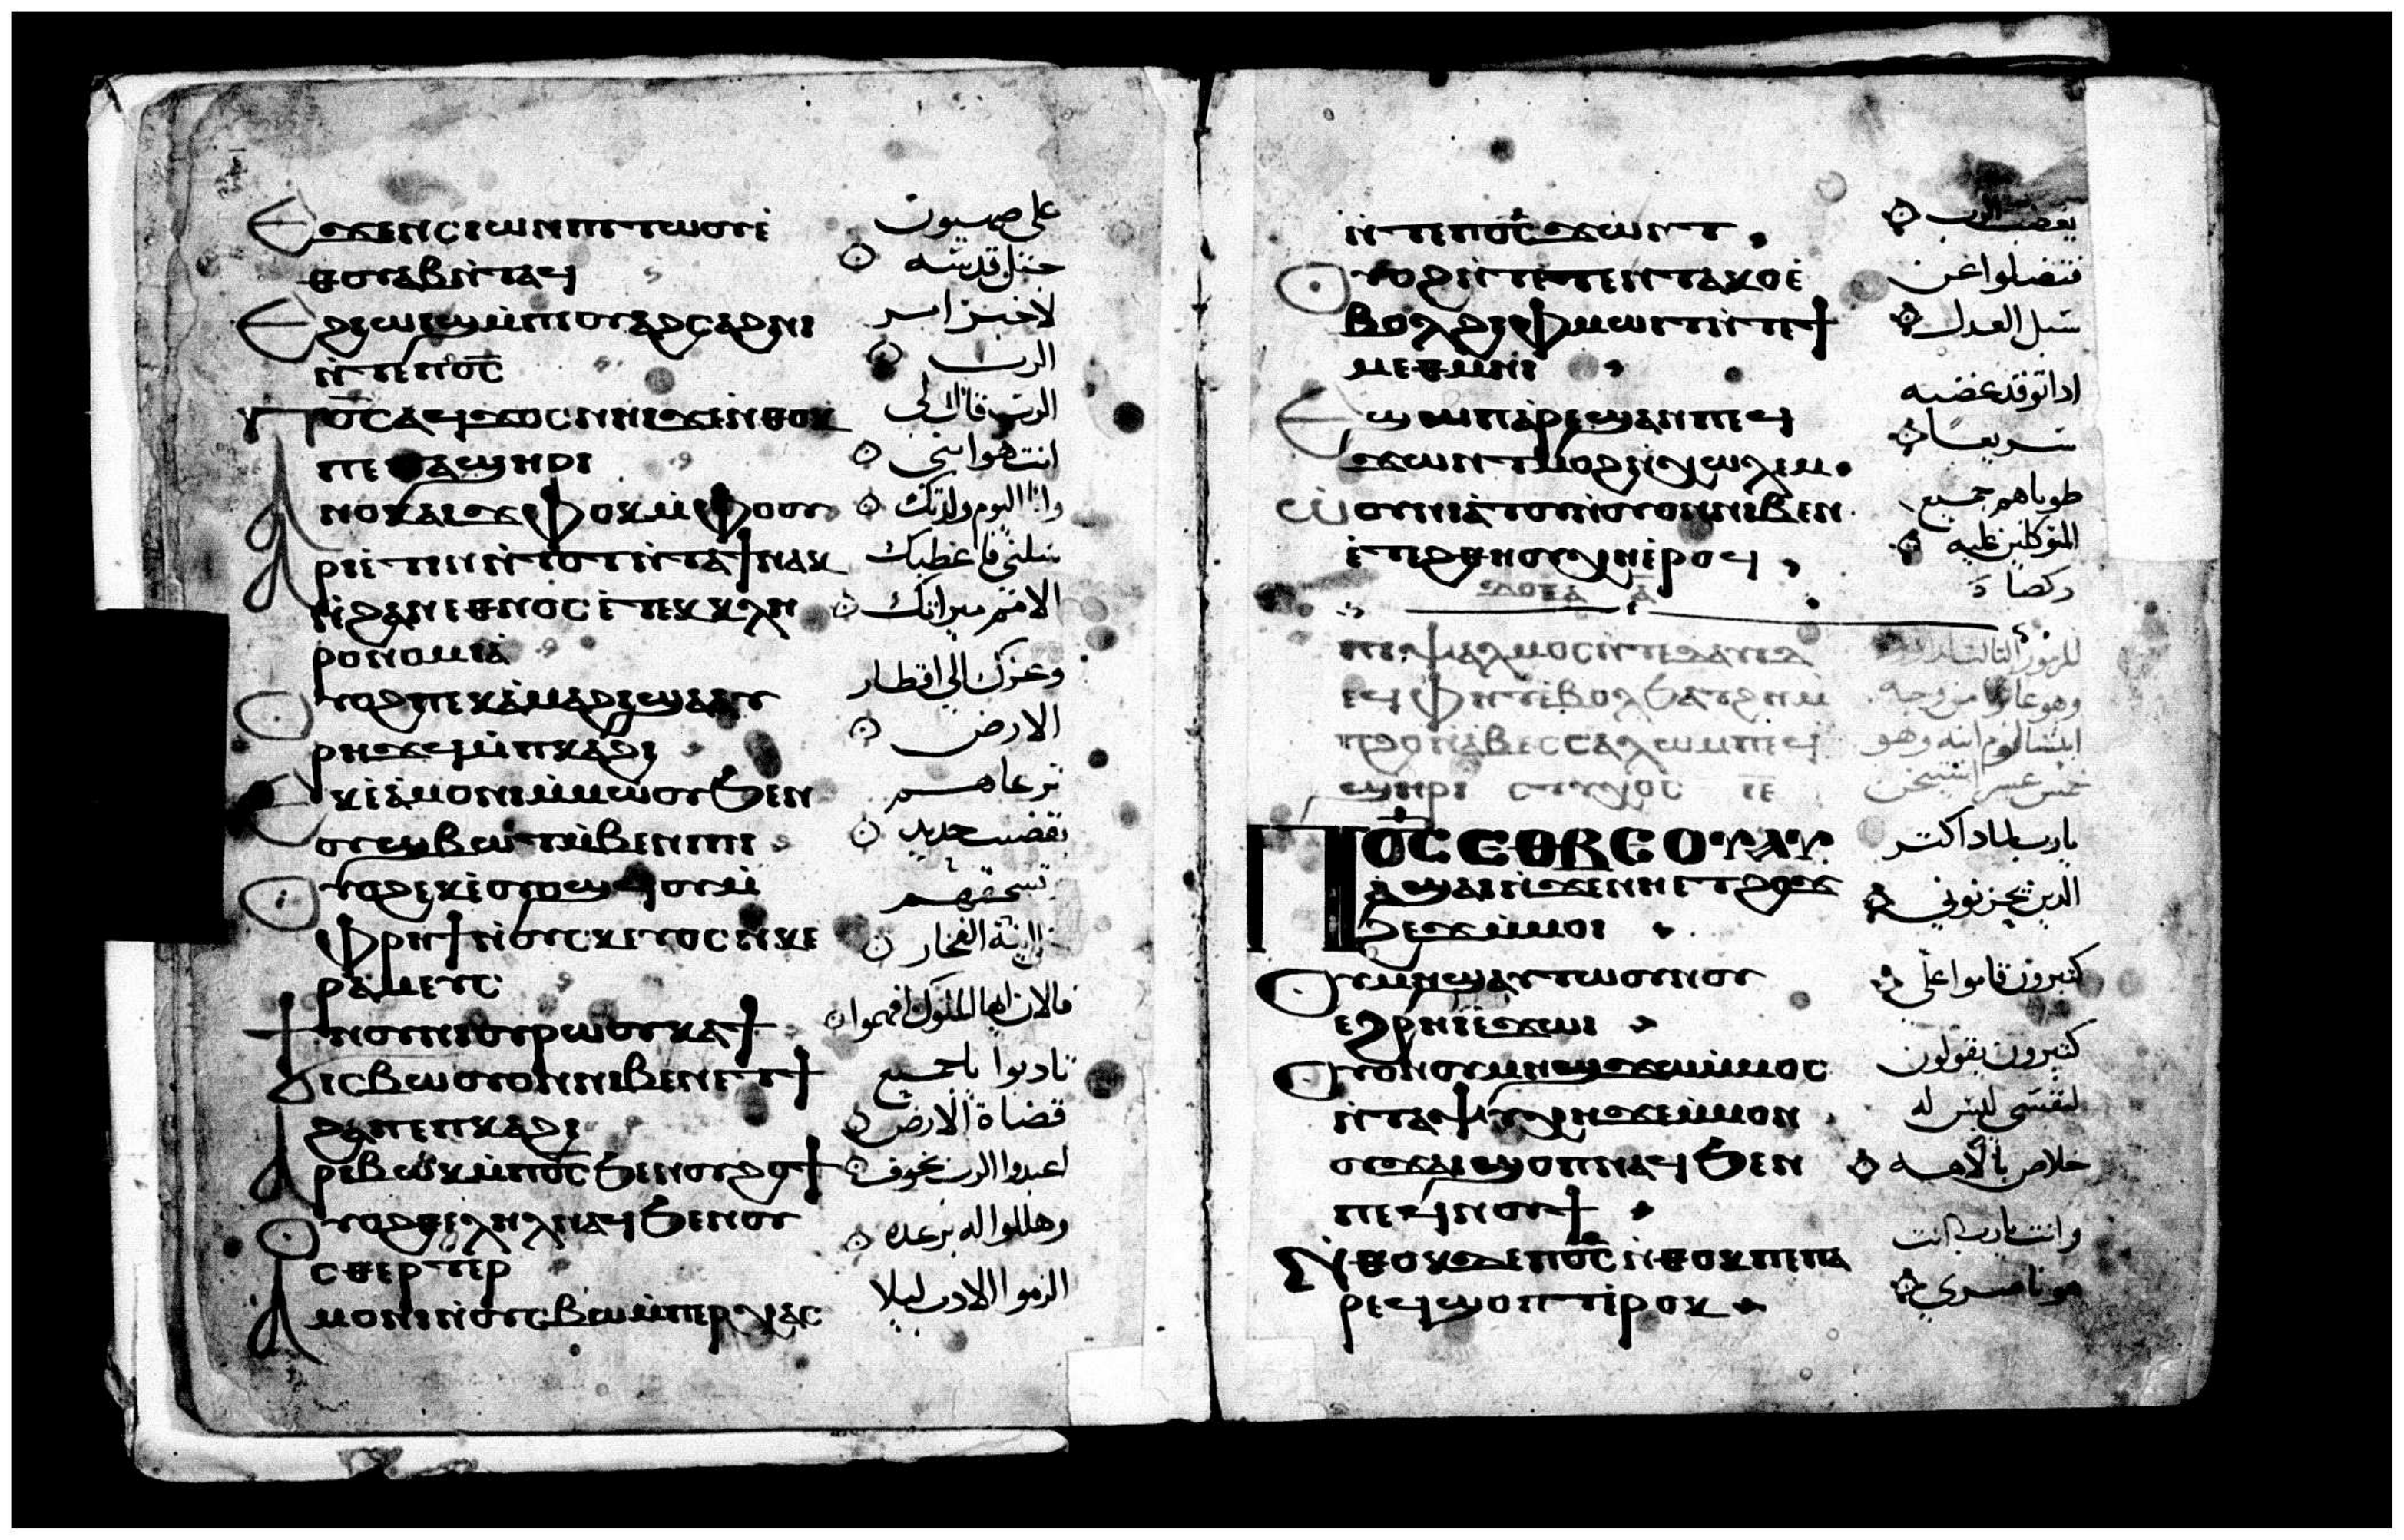 Ⲉϫⲉⲛⲥⲓⲱⲛⲡⲓⲧⲱⲟⲩⲉ̀
ⲑⲟⲩⲁⲃⲛ̀ⲧⲁϥ
Ⲉϩⲓⲱⲓϣⲙ̀ⲡⲓⲟⲩⲁϩⲥⲁϩⲛⲓ
ⲛ̀ⲧⲉⲡⲟ̅ⲥ̅
Ⲡⲟ̅ⲥ̅ⲁϥϫⲟⲥⲛⲏⲓϫⲉⲛ̀ⲑⲟⲕ
ⲡⲉⲡⲁϣⲏⲣⲓ
Ⲁⲛⲟⲕⲁⲓϫⲫⲟⲕⲙ̀ⲫⲟⲟⲩ
Ⲁⲣⲓⲉ̀ⲧⲓⲛⲛ̀ⲧⲟⲧⲛ̀ⲧⲁϯⲛⲁⲕ
ⲛ̀ϩⲁⲛⲉⲑⲛⲟⲥⲉ̀ⲧⲉⲕⲕⲗⲏ
ⲣⲟⲛⲟⲙⲓⲁ̀
Ⲟⲩⲟϩⲡⲉⲕⲁ̀ⲙⲁϩⲓϣⲁⲁⲩ
ⲣⲏϫϥⲙ̀ⲡⲕⲁϩⲓ
Ⲉⲕⲉ̀ⲁ̀ⲙⲟⲛⲓⲙ̀ⲙⲱⲟⲩϧⲉⲛ
ⲟⲩϣⲃⲱⲧⲙ̀ⲃⲉⲛⲓⲡⲓ
Ⲟⲩⲟϩⲉⲕⲉ̀ϧⲟⲙϧⲉⲙⲟⲩ ⲙ̀
ⲫⲣⲏϯⲛ̀ⲟⲩⲥⲕⲉⲩⲟⲥⲛ̀ⲕⲉ
ⲣⲁⲙⲉⲩⲥ
Ϯⲛⲟⲩⲛⲓⲟⲩⲣⲱⲟⲩⲕⲁϯ
ϭⲓⲥⲃⲱⲟⲩⲟⲛⲛⲓⲃⲉⲛⲉⲧϯ
ϩⲁⲡⲉⲡⲕⲁϩⲓ
Ⲁⲣⲓⲃⲱⲕⲙ̀ⲡⲟ̅ⲥ̅ϧⲉⲛⲟⲩϩⲟϯ
Ⲟⲩⲟϩⲑⲉⲗⲏⲗⲛⲁϥϧⲉⲛⲟⲩ
ⲥⲑⲉⲣⲧⲉⲣ
Ⲁⲙⲟⲛⲓⲛ̀ⲟⲩⲥⲃⲱⲙ̀ⲡⲉⲣϫⲁⲥ
على صهيون
جبل قدسه
لاخبر امر
الرب
الرب قال لي
انت هو ابني
وانا اليوم ولدتك
سلني فاعطيك
الامم ميراتك
وعزك الي اقطار
الارض
ترعاهم
بقضيب حديد
تسحقهم
انية الفخار
فالان ايها الملوك افهموا
تادبوا ياجميع
قضاة الارض
اعبدوا الرب بخوف
وهللوا له برعده
الزموا الادب ليلا
ⲛ̀ⲧⲉⲡⲟ̅ⲥ̅ϫⲱⲛⲧ
Ⲟⲩⲟϩⲛ̀ⲧⲉⲧⲉⲛⲧⲁⲕⲟⲉ̀
ⲃⲟⲗϩⲓⲫⲙⲱⲓⲧⲛ̀ⲧⲉϯ
ⲙⲉⲑⲙⲏⲓ
Ⲉϣⲱⲡⲁⲣⲉϣⲁⲛⲡⲉϥ
ϫⲱⲛⲧⲙⲟϩⲛ̀ⲭⲱⲗⲉⲙ
Ⲱⲟⲩⲛⲓⲁ̀ⲧⲟⲩⲛ̀ⲟⲩⲟⲛⲛⲓⲃⲉⲛ
ⲉ̀ⲧⲉϩⲑⲏⲟⲩⲭⲏⲉ̀ⲣⲟϥ
ⲇⲟⲝⲁ ⲁ̅
ⲡⲓⲯⲁⲗⲙⲟⲥⲛ̀ⲧⲉⲇⲁⲩⲓⲇ
ⲉϥⲫⲏⲧⲉ̀ⲃⲟⲗϧⲁⲧϩⲏⲙ̀
ⲡϩⲟⲛⲁⲃⲉⲥⲥⲁⲗⲱⲙⲡⲉϥ
ϣⲏⲣⲓ ⲥⲧⲩⲭⲟⲥ ⲓ̅ⲉ̅
Ⲡⲟ̅ⲥ̅ⲉⲑⲃⲉⲟⲩⲁⲩ
ⲁϣⲁⲓⲛ̀ϫⲉⲛⲏⲉⲧϩⲟϫ
ϩⲉϫⲙ̀ⲙⲟⲓ
Ⲟⲩⲙⲏϣⲁⲩⲧⲱⲟⲩⲛⲟⲩ
ⲉϩⲣⲏⲓⲉ̀ϫⲱⲓ
Ⲟⲩⲟⲛⲟⲩⲙⲏϣϫⲱⲙ̀ⲙⲟⲥ
ⲛ̀ⲧⲁⲯⲩⲭⲏϫⲉⲙ̀ⲙⲟⲛ
ⲟⲩϫⲁⲓϣⲟⲡⲛⲁϥϧⲉⲛ
ⲡⲉϥⲛⲟⲩϯ
Ⲛ̀ⲑⲟⲕⲇⲉⲡⲟ̅ⲥ̅ⲛ̀ⲑⲟⲕⲡⲉⲡⲁ
ⲣⲉϥϣⲟⲡⲧⲉ̀ⲣⲟⲕ
يغضب الرب
فتضلوا عن
سبل العدل
ادا توقد غضبه
سريعا
طوباهم جميع
المتوكلين عليه
يارب لمادا كتر
الدين يحزنوني
كتيرون قاموا علي
كتيرون يقولون
لنفسي ليس له
خلاص بالاهه
وانت يارب انت
هو ناصري